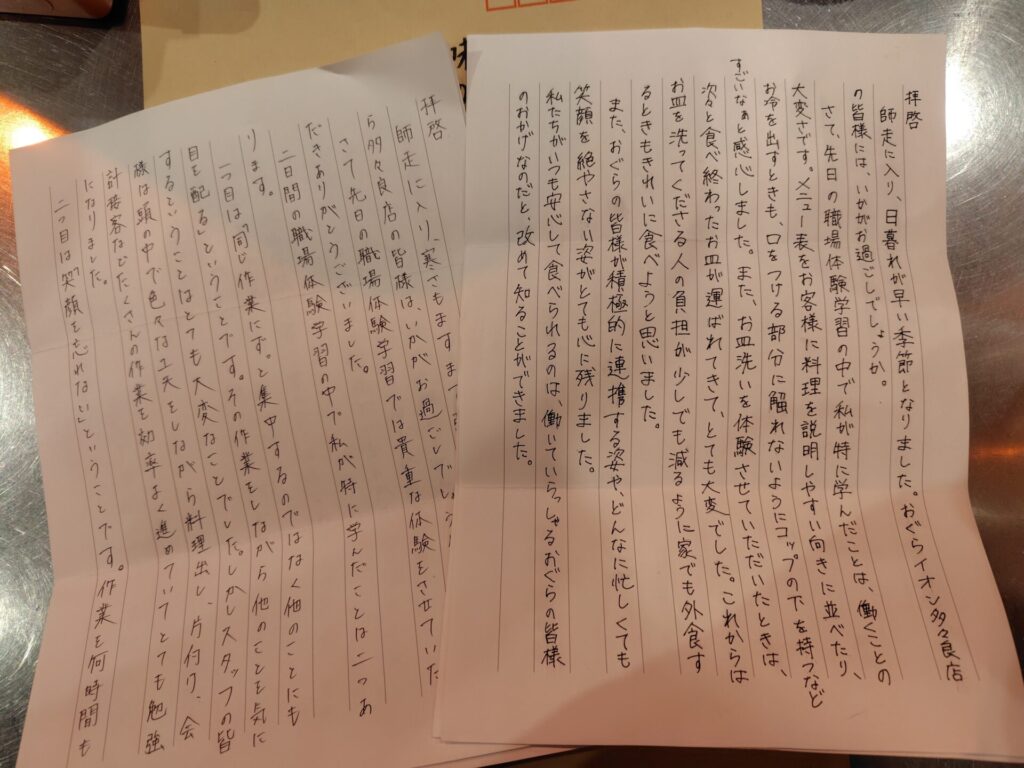 拝啓
師走に入り、日暮れが早い季節となりました。おぐらイオン多々良店
の皆様には、いかがお過ごしでしょうか。
さて、先日の職場体験学習の中で私が特に学んだことは、働くことの
大変さです。メニュー表をお客様に料理を説明しやすい向きに並べたり、
お冷を出すときも、口をつける部分に触れないようにコップの下を持つなど
すごいなぁと感心しました。また、お皿洗いを体験させていただいたときは、
次々と食べ終わったお皿が運ばれてきて、とても大変でした。これからは
お皿を洗ってくださる人の負担が少しでも減るように家でも外食す
るときもきれいに食べようと思いました。
また、おぐらの皆様が積極的に連携する姿や、どんなに忙しくても
笑顔を絶やさない姿がとても心に残りました。
私たちがいつも安心して食べられるのは、働いていらっしゃるおぐらの皆様
のおかげなのだと、改めて知ることができました。
拝啓
師走に入り、寒さもますます
ら多々良店の皆様は、いかがお過ごしでしょう
さて先日の職場体験学習では貴重な体験をさせていた
だきありがとうございました。
二日間の職場体験学習の中で私が特に学んだことは二つあ
ります。
一つ目は「同じ作業にずっと集中するのではなく他のことにも
目を配る」ということです。その作業をしながら他のことを気に
するということはとても大変なことでした。しかしスタッフの皆
様は頭の中で色々な工夫をしながら料理出し、片付け、会
計接客などたくさんの作業を効率よく進めていてとても勉強
になりました。
二つ目は「笑顔を忘れない」ということです。作業を何時間も